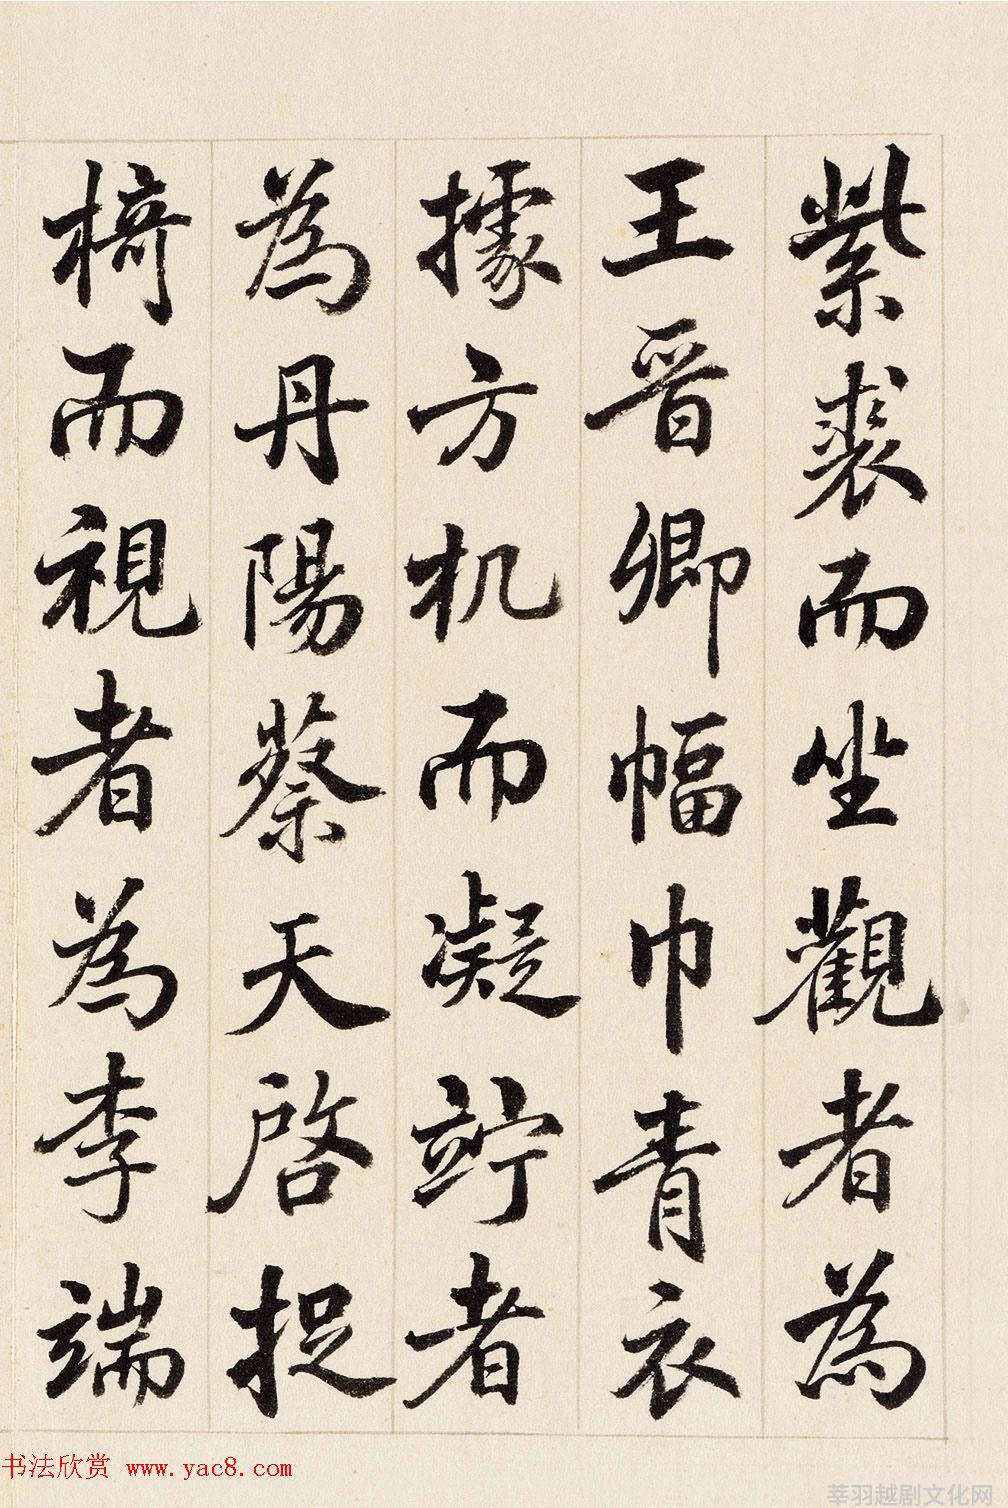 紫裘而坐觀者為
王晉卿幅巾青衣
據方机而凝竚者
為丹陽蔡天啓捉
椅而視者為李端
书法欣赏 www.yac8.com
莘羽越剧文化网